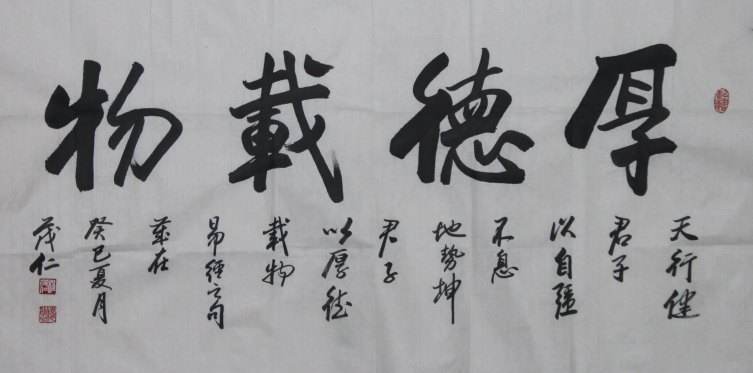 厚德載物
天行健
君子
以自強
不息
地勢坤
君子
以厚德
載物
易經之句
癸巳夏月
茂仁